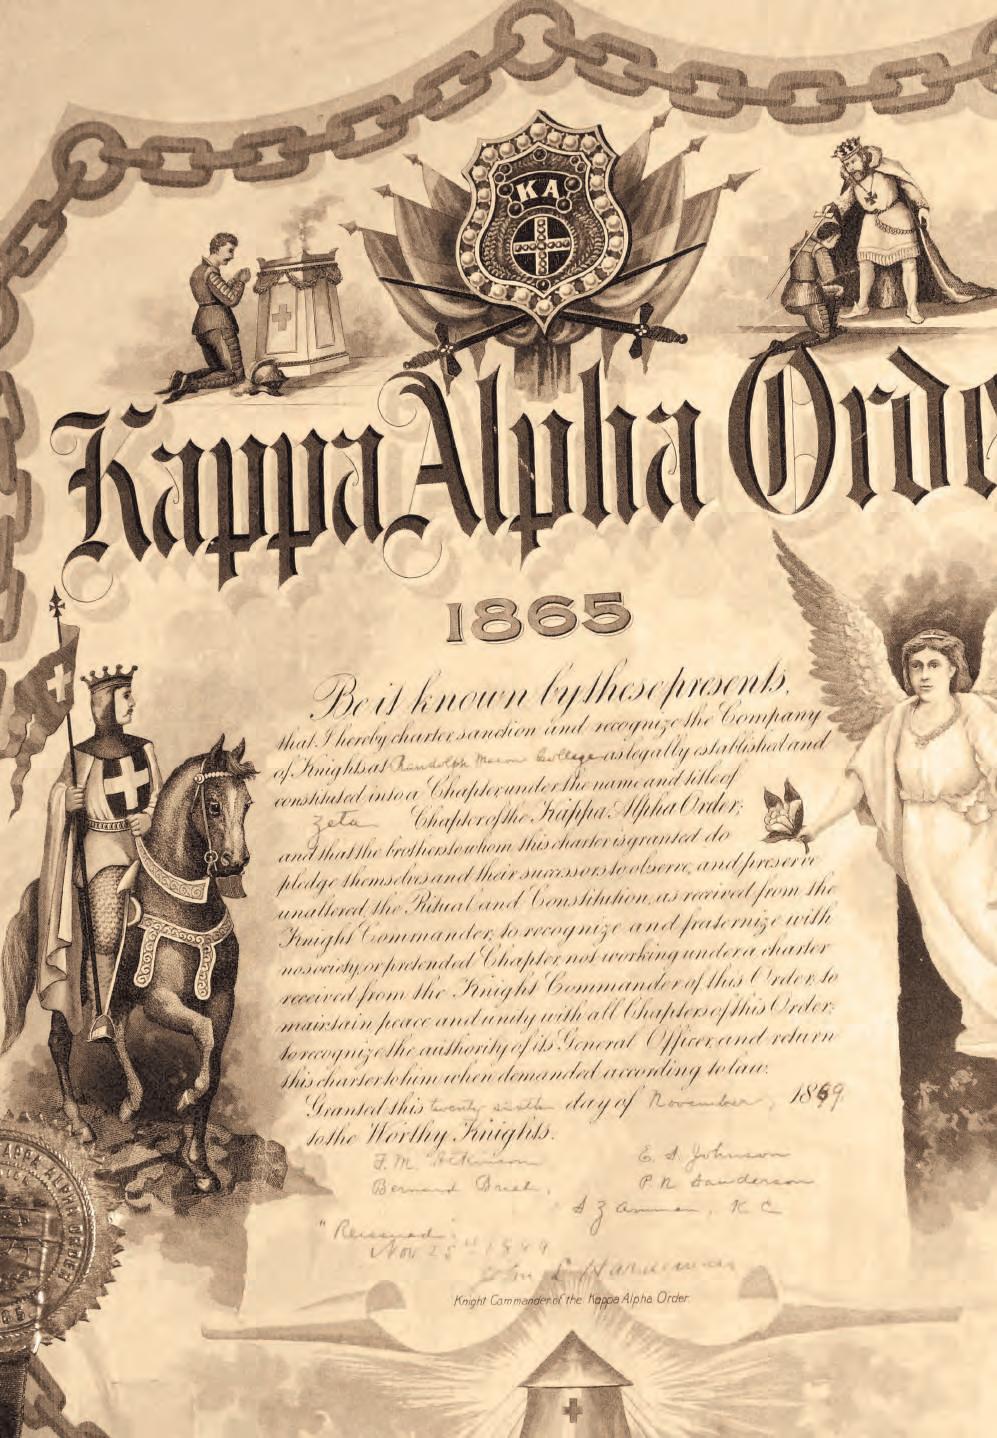 KA
Kappa Alpha Orde
1865
Be it known by these presents,
that I hereby charter, sanction and recognize the Company
of Knights at Randolph Macon College as legally established and
constituted into a Chapter under the name and title of
Zeta Chapter of the Kappa Alpha Order;
and that the brothers to whom this charter is granted do
pledge themselves and their successors to observe, and preserve
unaltered, the Ritual and Constitution, as received from the
Knight Commander, to recognize and fraternize with
no society, or pretended Chapter, not working under a charter
received from the Knight Commander of this Order, to
maintain peace and unity with all Chapters of this Order;
to recognize the authority of its General Officer, and return
this charter to him when demanded according to law.
Granted this twenty sixth day of November, 1869.
to the Worthy Knights.
F. M. Atkinson E. S. Johnson
Bernard P. N. Sanderson
S Z Ammen, K C
"Reissued"
Nov 25th 1889
John
Knight Commander of the Kappa Alpha Order.
KAPPA ALPHA ORDER